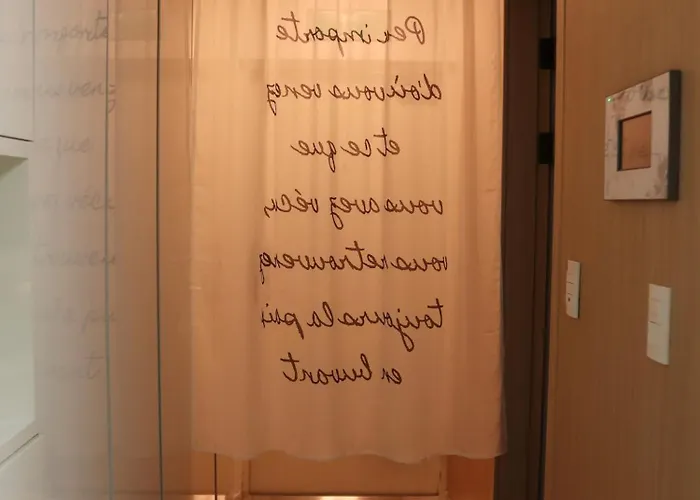 Peu importe
d'où vous venez
et ce que
vous avez vécu,
vous retrouverez
toujours la paix
en buvant